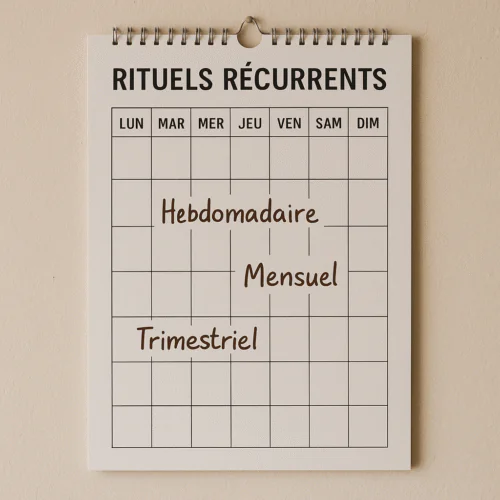 RITUELS RÉCURRENTS
LUN MAR MER JEU VEN SAM DIM
Hebdomadaire
Mensuel
Trimestriel